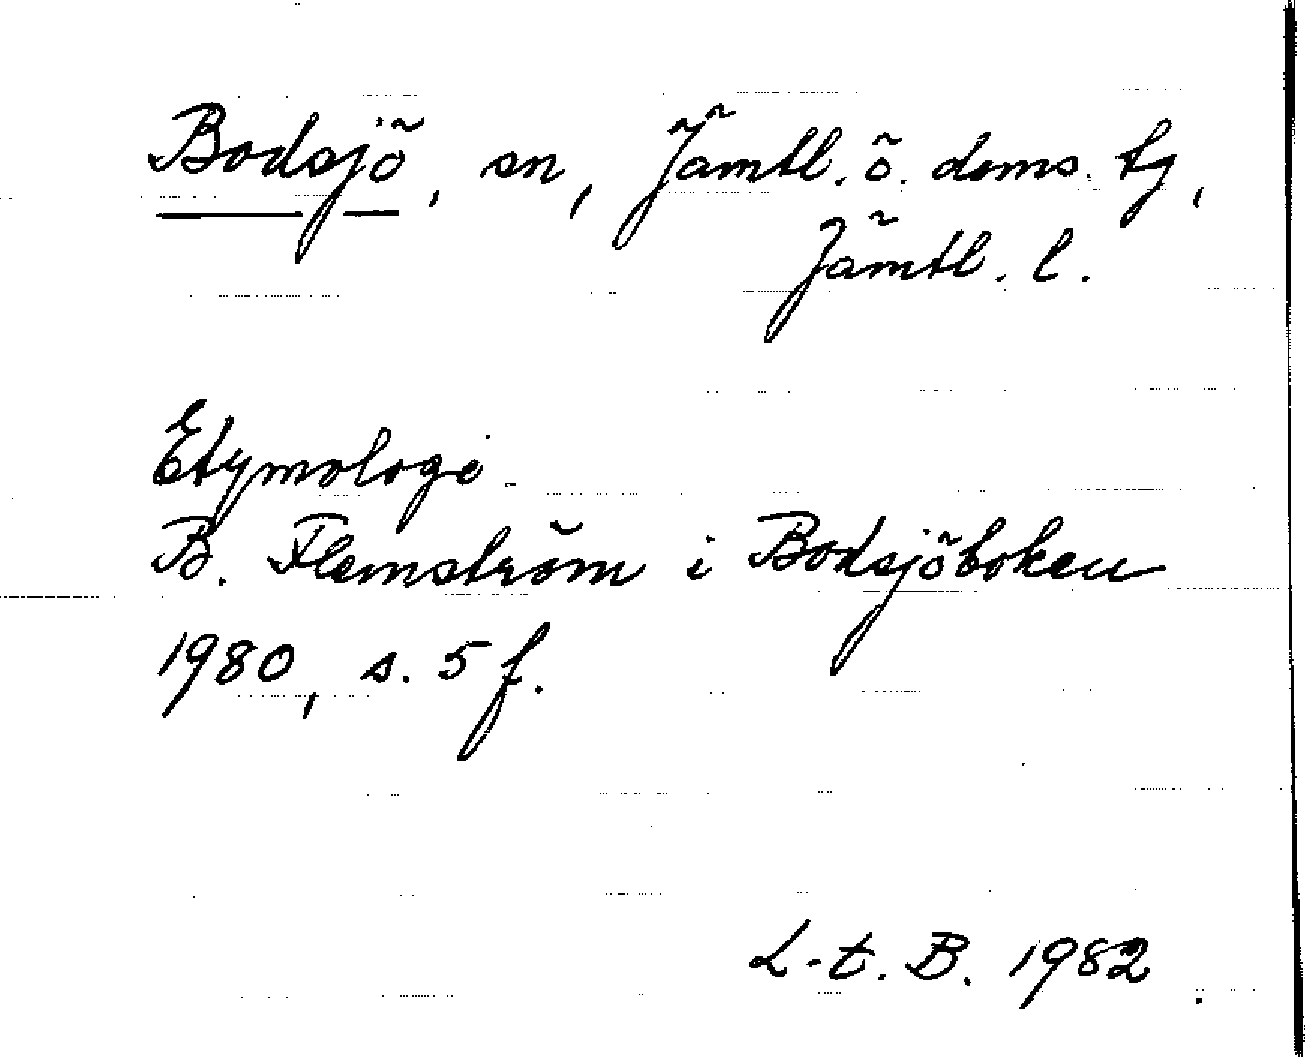 Bodsjö, sn, Jämtl. ö. doms. tg,
Jämtl. l.
Etymologi
B. Flemström i Bodsjöboken
1980, s. 5 f.
L-t. B. 1982